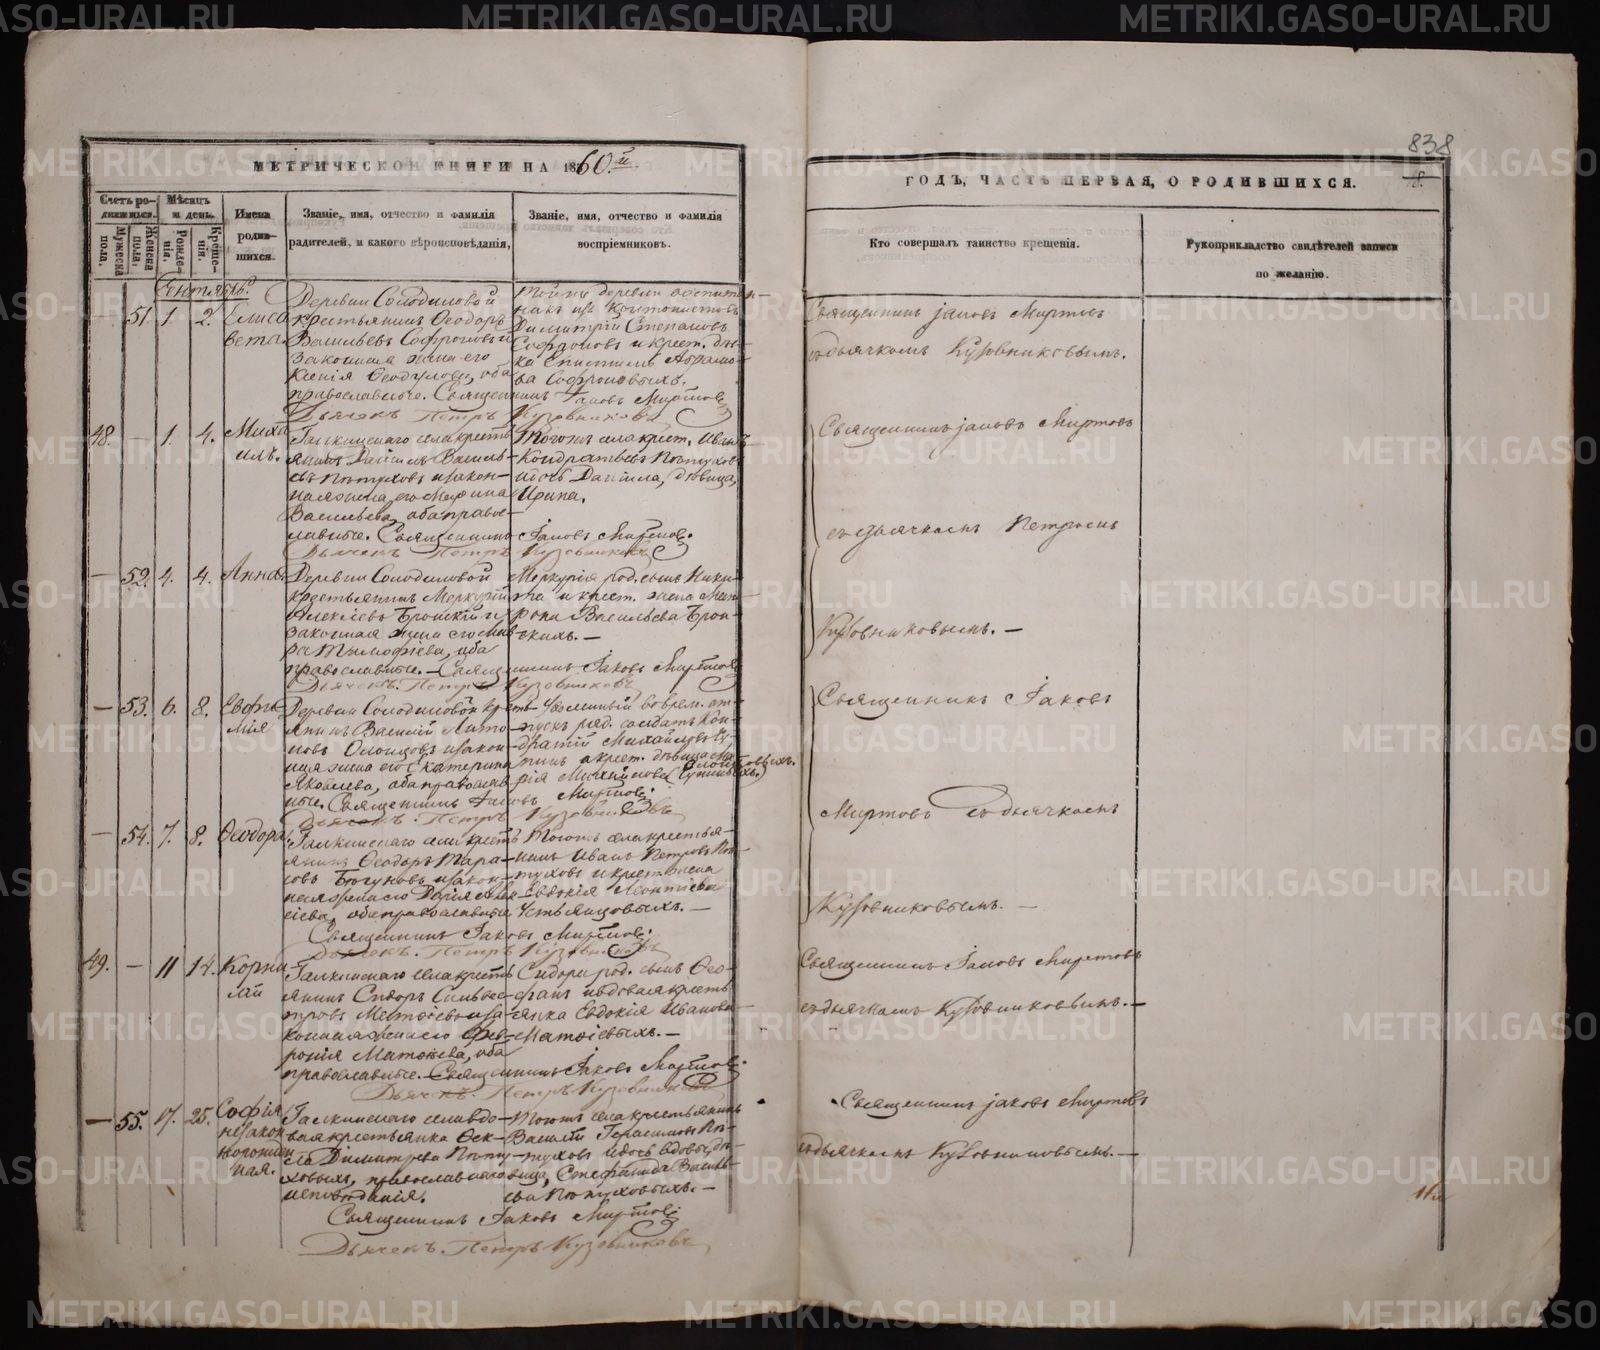 838
8.
МЕТРИЧЕСКОЙ КНИГИ НА 1860.й
ГОДЪ, ЧАСТЬ ПЕРВАЯ, О РОДИВШИХСЯ.
Счетъ родившихся.
Мужеска пола.
Женска пола.
Мѣсяцъ и день.
Рожденія.
Крещенія.
Имена родившихся.
Званіе, имя, отчество и фамилія родителей, и какого вѣроисповѣданія,
Званіе, имя, отчество и фамилія воспріемниковъ.
Кто совершалъ таинство крещенія.
Рукоприкладство свидѣтелей записи по желанію.
Сентябрь
51. 1. 2. Елиса
вета.
Деревни Солодиловой
крестьянинъ Ѳеодоръ
Васильевъ Софроновъ и
законная жена его
Ксенія Ѳеодулова, оба
православные. Священникъ Іаковъ Миртовъ
Дьячекъ Петръ Кузовниковъ
Димитрій Степановъ
Софроновъ и крест.
Софроновыхъ.
Священникъ Іаковъ Миртовъ
съ дьячкомъ Кузовниковымъ.
48. — 1. 4. Миха
илъ.
Галкинскаго села кресть
янинъ Даніилъ Василь-
евъ Пѣтуховъ и закон-
ная жена его Марина
Васильева, оба право-
славные. Священникъ Іаковъ Миртовъ.
Дьячекъ Петръ Кузовниковъ
Тогожъ села крест. Иванъ
Кондратьевъ Пѣтуховъ
и дочь Даніила, дѣвица,
Ирина.
Священникъ Іаковъ Миртовъ
съ дьячкомъ Петромъ
Кузовниковымъ. —
— 52. 4. 4. Анна
Деревни Солодиловой
крестьянинъ Меркурій
Алексѣевъ Бронскій и
законная жена его Мав-
ра Тимофѣева, оба
православные. — Священникъ Іаковъ Миртовъ
Дьячекъ. Петръ Кузовниковъ
Меркурія род. сынъ Ники-
та и крест. жена Мат-
рона Васильева Брон-
скихъ. —
— 53. 6. 8. Евфи
мія
Деревни Солодиловой крестъ
янинъ Василій Анто-
новъ Олонцовъ и закон-
ная жена его Екатерина
Яковлева, оба православ
ные. Священникъ Іаковъ Миртовъ
Дьячекъ. Петръ Кузовниковъ
Уволенный во врем. от-
пускъ ряд. солдатъ Кон-
дратій Михайловъ
и крест. дѣвица Ма-
рія Михайлова
Священникъ Іаковъ
Миртовъ съ дьячкомъ
Кузовниковымъ. —
— 54. 7. 8. Ѳеодора
Галкинскаго села кресть
янинъ Ѳеодоръ Тара-
совъ Богуновъ и закон-
ная жена его Дарія
оба православные
Священникъ Іаковъ Миртовъ.
Дьячекъ. Петръ Кузовниковъ
Тогожъ села крестья-
нинъ Иванъ Петровъ Пѣ-
туховъ и крест. жена
Евдокія Леонтіева
Устьянцовыхъ. —
49. — 11 14. Корни
лій
Галкинскаго села кресть
янинъ Сидоръ Сильвес-
тровъ Матѳіевъ и за-
конная жена его Фев-
ронія Матѳіева, оба
православные. Священникъ Іаковъ Миртовъ.
Дьячекъ. Петръ Кузовниковъ
Сидора род. сынъ Ѳео-
фанъ и вдовая кресть
янка Евдокія Иванова
Матѳіевыхъ. —
Священникъ Іаковъ Миртовъ
съ дьячкомъ Кузовниковымъ. —
— 55. 17. 25. Софія
незакон
норожден
ная.
Галкинскаго села вдо-
вая крестьянка Ѳек-
ла Димитріева Пѣту-
ховыхъ, православнаго
исповѣданія.
Священникъ Іаковъ Миртовъ
Дьячекъ. Петръ Кузовниковъ
Тогожъ села крестьянинъ
Василій Герасимовъ Пѣ-
туховъ и дочь вдовы, дѣ-
вица, Стефанида Василь-
ева Пѣтуховыхъ. —
Священникъ Іаковъ Миртовъ
съ дьячкомъ Кузовниковымъ. —
METRIKI.GASO-URAL.RU